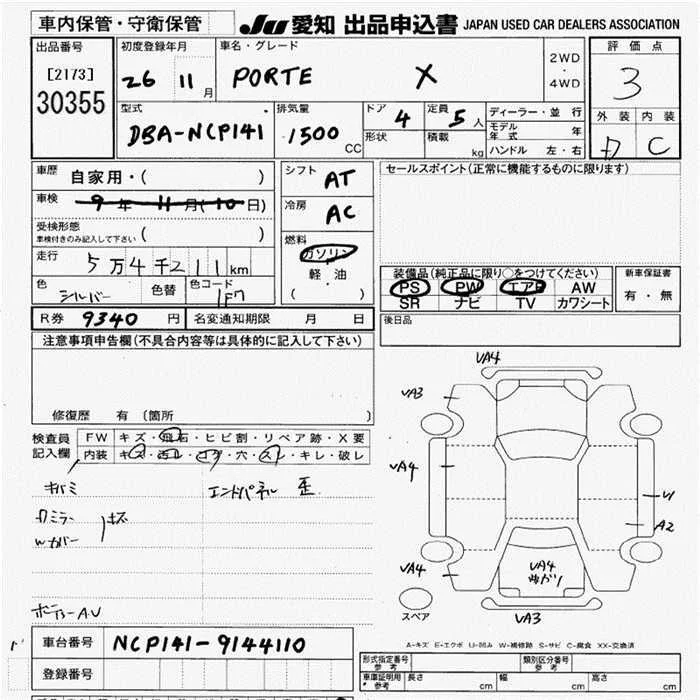 車内保管・守衛保管
JU 愛知 出品申込書 JAPAN USED CAR DEALERS ASSOCIATION
出品番号
[2173]
30355
初度登録年月
26 11月
車名・グレード
PORTE X
2WD
・
4WD
評価点
3
外装 内装
C
型式
DBA-NCP141
排気量
1500 CC
ドア 4
定員 5人
形状
積載 kg
ディーラー・並行
モデル年式 年
ハンドル 左・右
車歴
自家用・( )
車検
9年11月(10日)
受検形態
車検付きのみ記入して下さい ( )
走行
5万4千211km
色 シルバー
色替
色コード 1F7
シフト AT
冷房 AC
燃料
ガソリン
軽・油
( )
セールスポイント(正常に機能するものに限ります)
装備品(純正品に限り○をつけてください)
PS PW エアB AW
SR ナビ TV カワシート
新車保証書
有・無
R券 9340 円
名変通知期限 月 日
後日品
注意事項申告欄(不具合内容等は具体的に記入して下さい)
修復歴 有 (箇所 )
検査員記入欄
FW キズ・飛石・ヒビ割・リペア跡・X要
内装 キズ・汚レ・コゲ・穴・スレ・キレ・破レ
キバミ
エンドパネル 歪
ミラー
Wカバー
キズ
A.U
VA4
VA3
VA4
VA4
U1
A2
VA4
曲がり
VA3
スペア
A-キズ E-エクボ U-凹み W-補修跡 S-サビ C-腐食 XX-交換済
車台番号 NCP141-9144110
登録番号
形式指定番号 参考
類別区分番号 参考
車庫証明用 参考
長さ cm
幅 cm
高さ cm